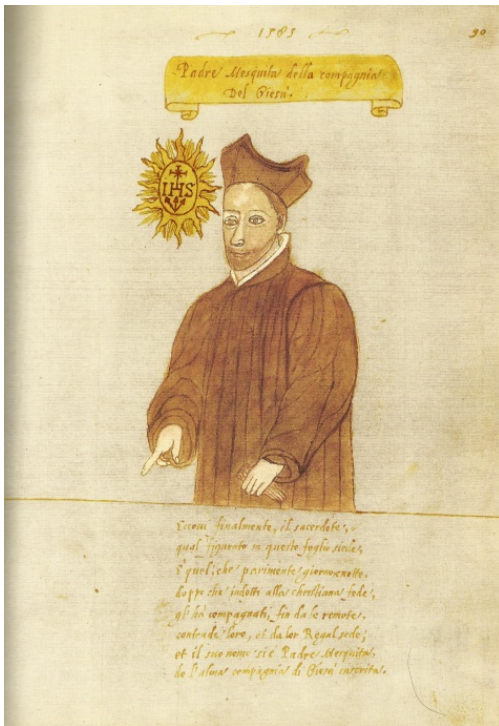 1585
90
Padre Mesquita della compagnia
Del Giesù.
IHS
Eccoui finalmente, il sacerdote,
qual figurato in questo foglio siede,
È quel; che parimente giorno e notte,
doppo che indotti alla christiana fede,
gl'hà compagnati, fin da le remote.
contrade loro, et da lor Regal sede;
et il suo nome si è Padre Mesquita.
de l'alma compagnia di Giesù inscritta.